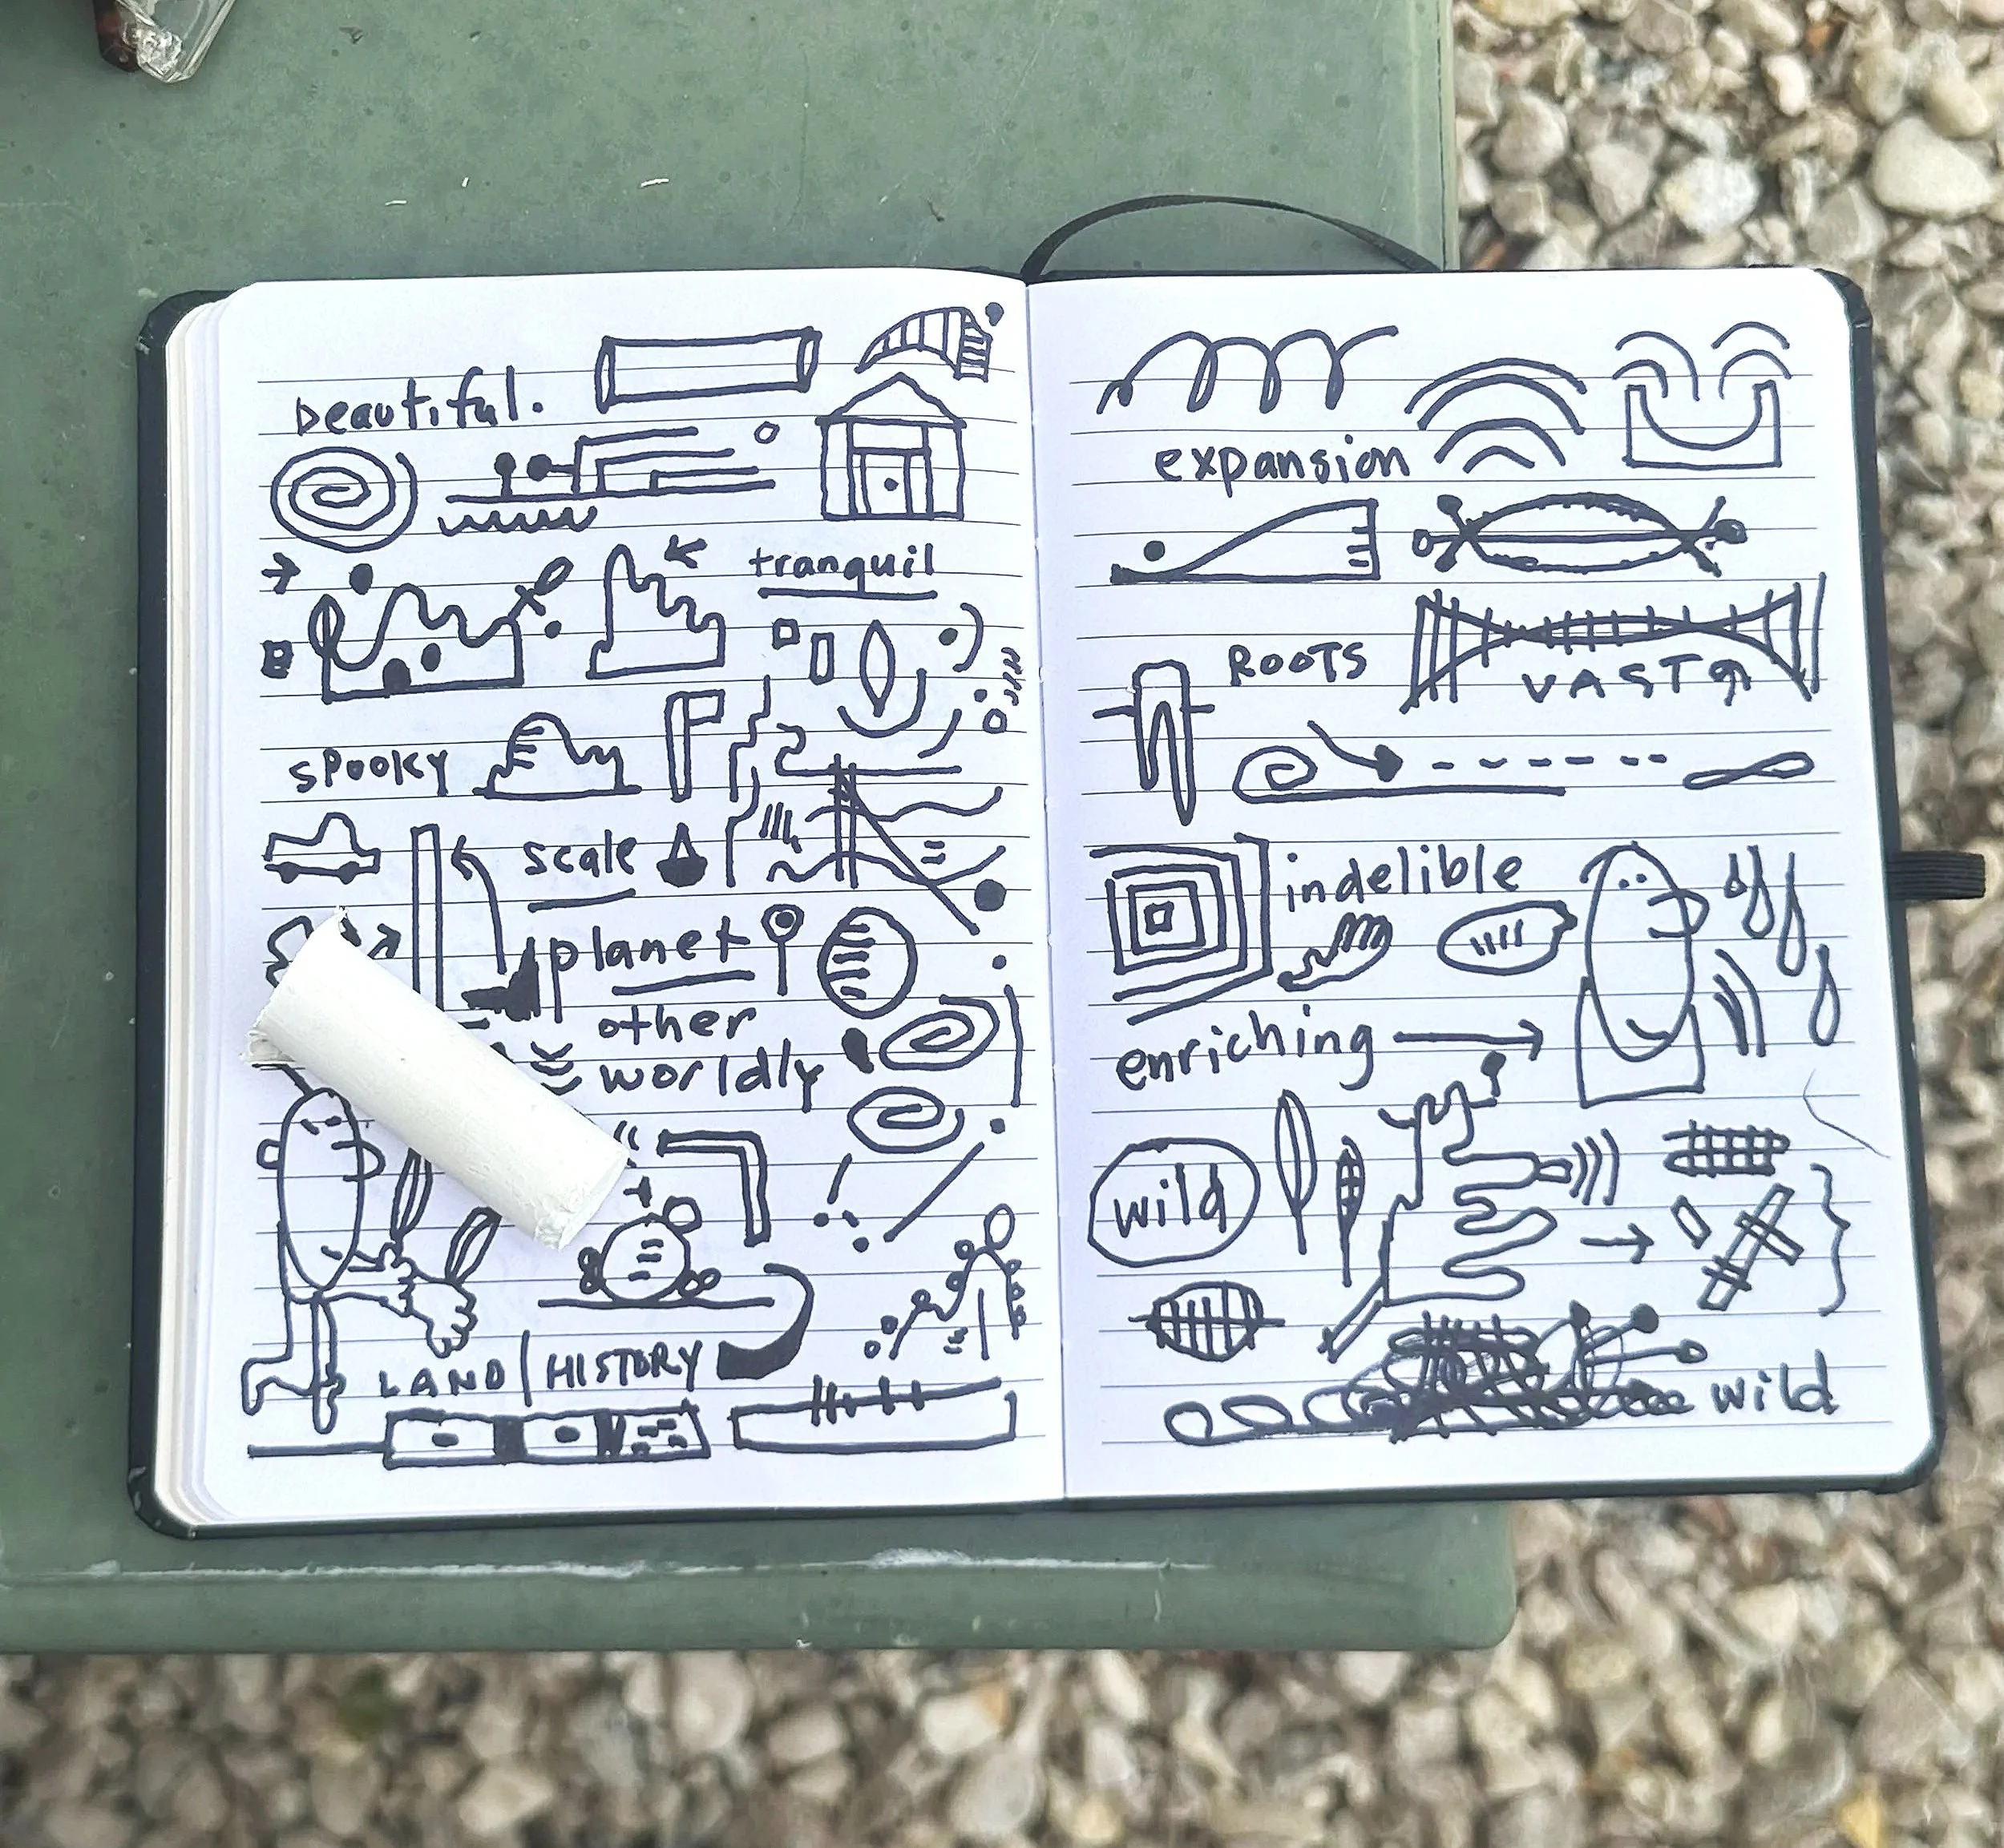 beautiful.
tranquil
spooky
scale
planet
other
worldly
LAND | HISTORY
expansion
ROOTS
VAST
indelible
enriching
wild
wild